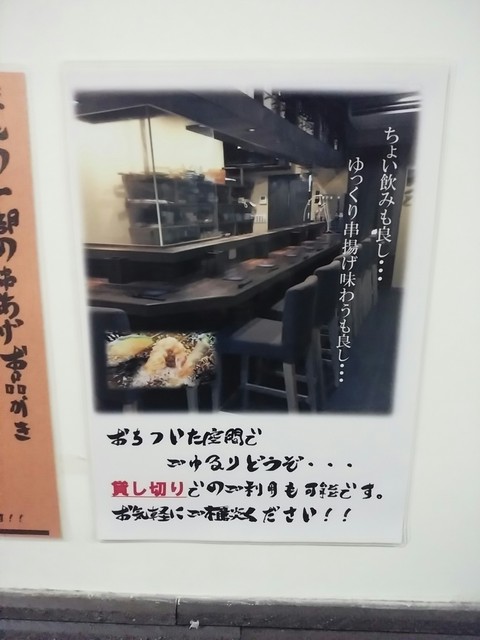 ちょい飲みも良し・・・
ゆっくり串揚げ味わうも良し・・・
おちついた空間で
ごゆるりどうぞ・・・
貸し切りでのご利用も可能です。
お気軽にご相談ください！！
一部の串あげお品がき
！！